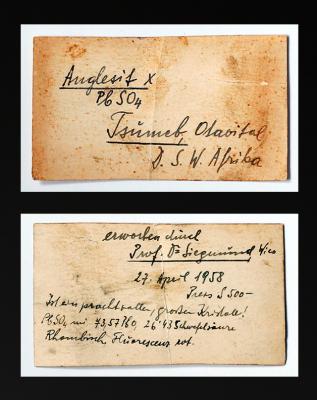 Anglesit X
PbSO4
Tsumeb, Otavital
D. S. W. Afrika
erworben durch
Prof. Dr Siegmund Wien
27. April 1958
Preis S 500–
prachtvoller, großer Kristall!
PbSO4 mit 73,57 PbO, 26,43 Schwefelsäure
Rhombisch. Fluorescenz rot.